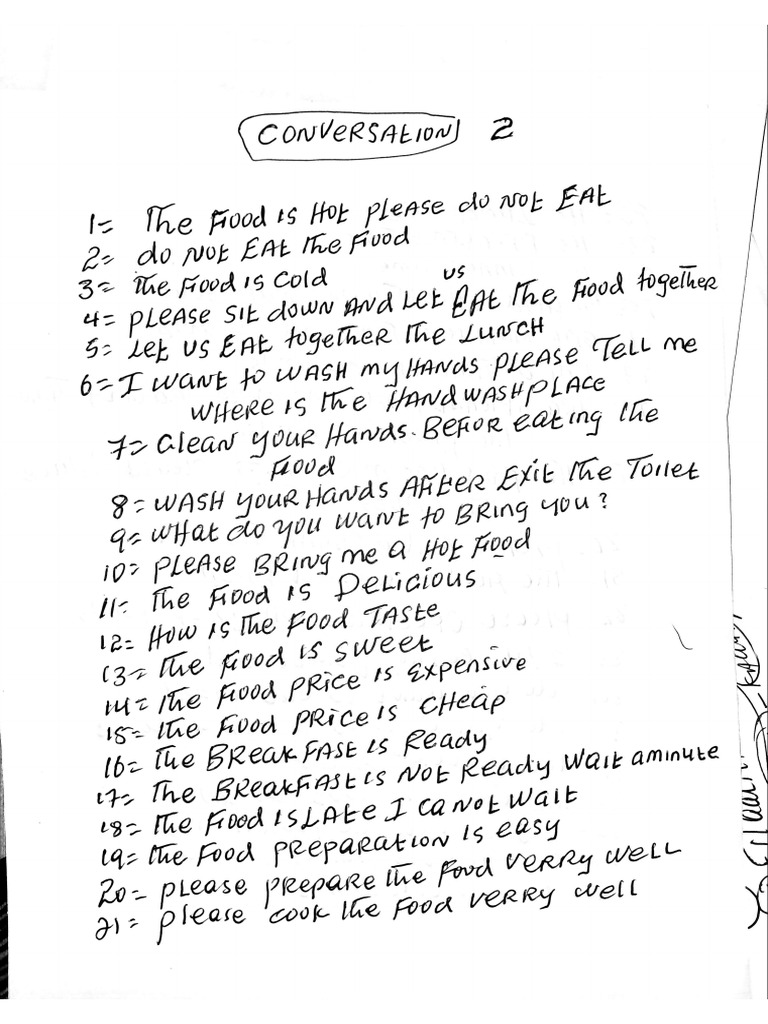 CONVERSATION 2
1= The Food is Hot please do not EAt
2= do NOt EAt the Food
3= the Food is Cold
us
4= PLEASE Sit down ANd LEt EAt the Food together
5= LEt US EAt together the LUNCH
6= I WANt to WASH my HANDS PLEASE TELL me
WHERE IS the HANdWASHPLACE
7= CLEAN YOUR HANds. BEFOR eating the
Food
8= WASH YOUR HANds AFtER EXit the Toilet
9= WHat do you Want to BRing you?
10= PLEASE BRing me a Hot Food
11= The Food is DELicious
12= How is the Food TAStE
13= The Food is SWeet
14= the Food PRice is Expensive
15= the Food PRice is CHeap
16= The BREAKFASt is Ready
17= The BREAKFASt is NOt Ready Wait aminute
18= the Food is LAtE I ca Not Wait
19= the Food PREPARAtion is easy
20= please PREPARE the Food VERRY WELL
21= please cook the Food VERRY WELL